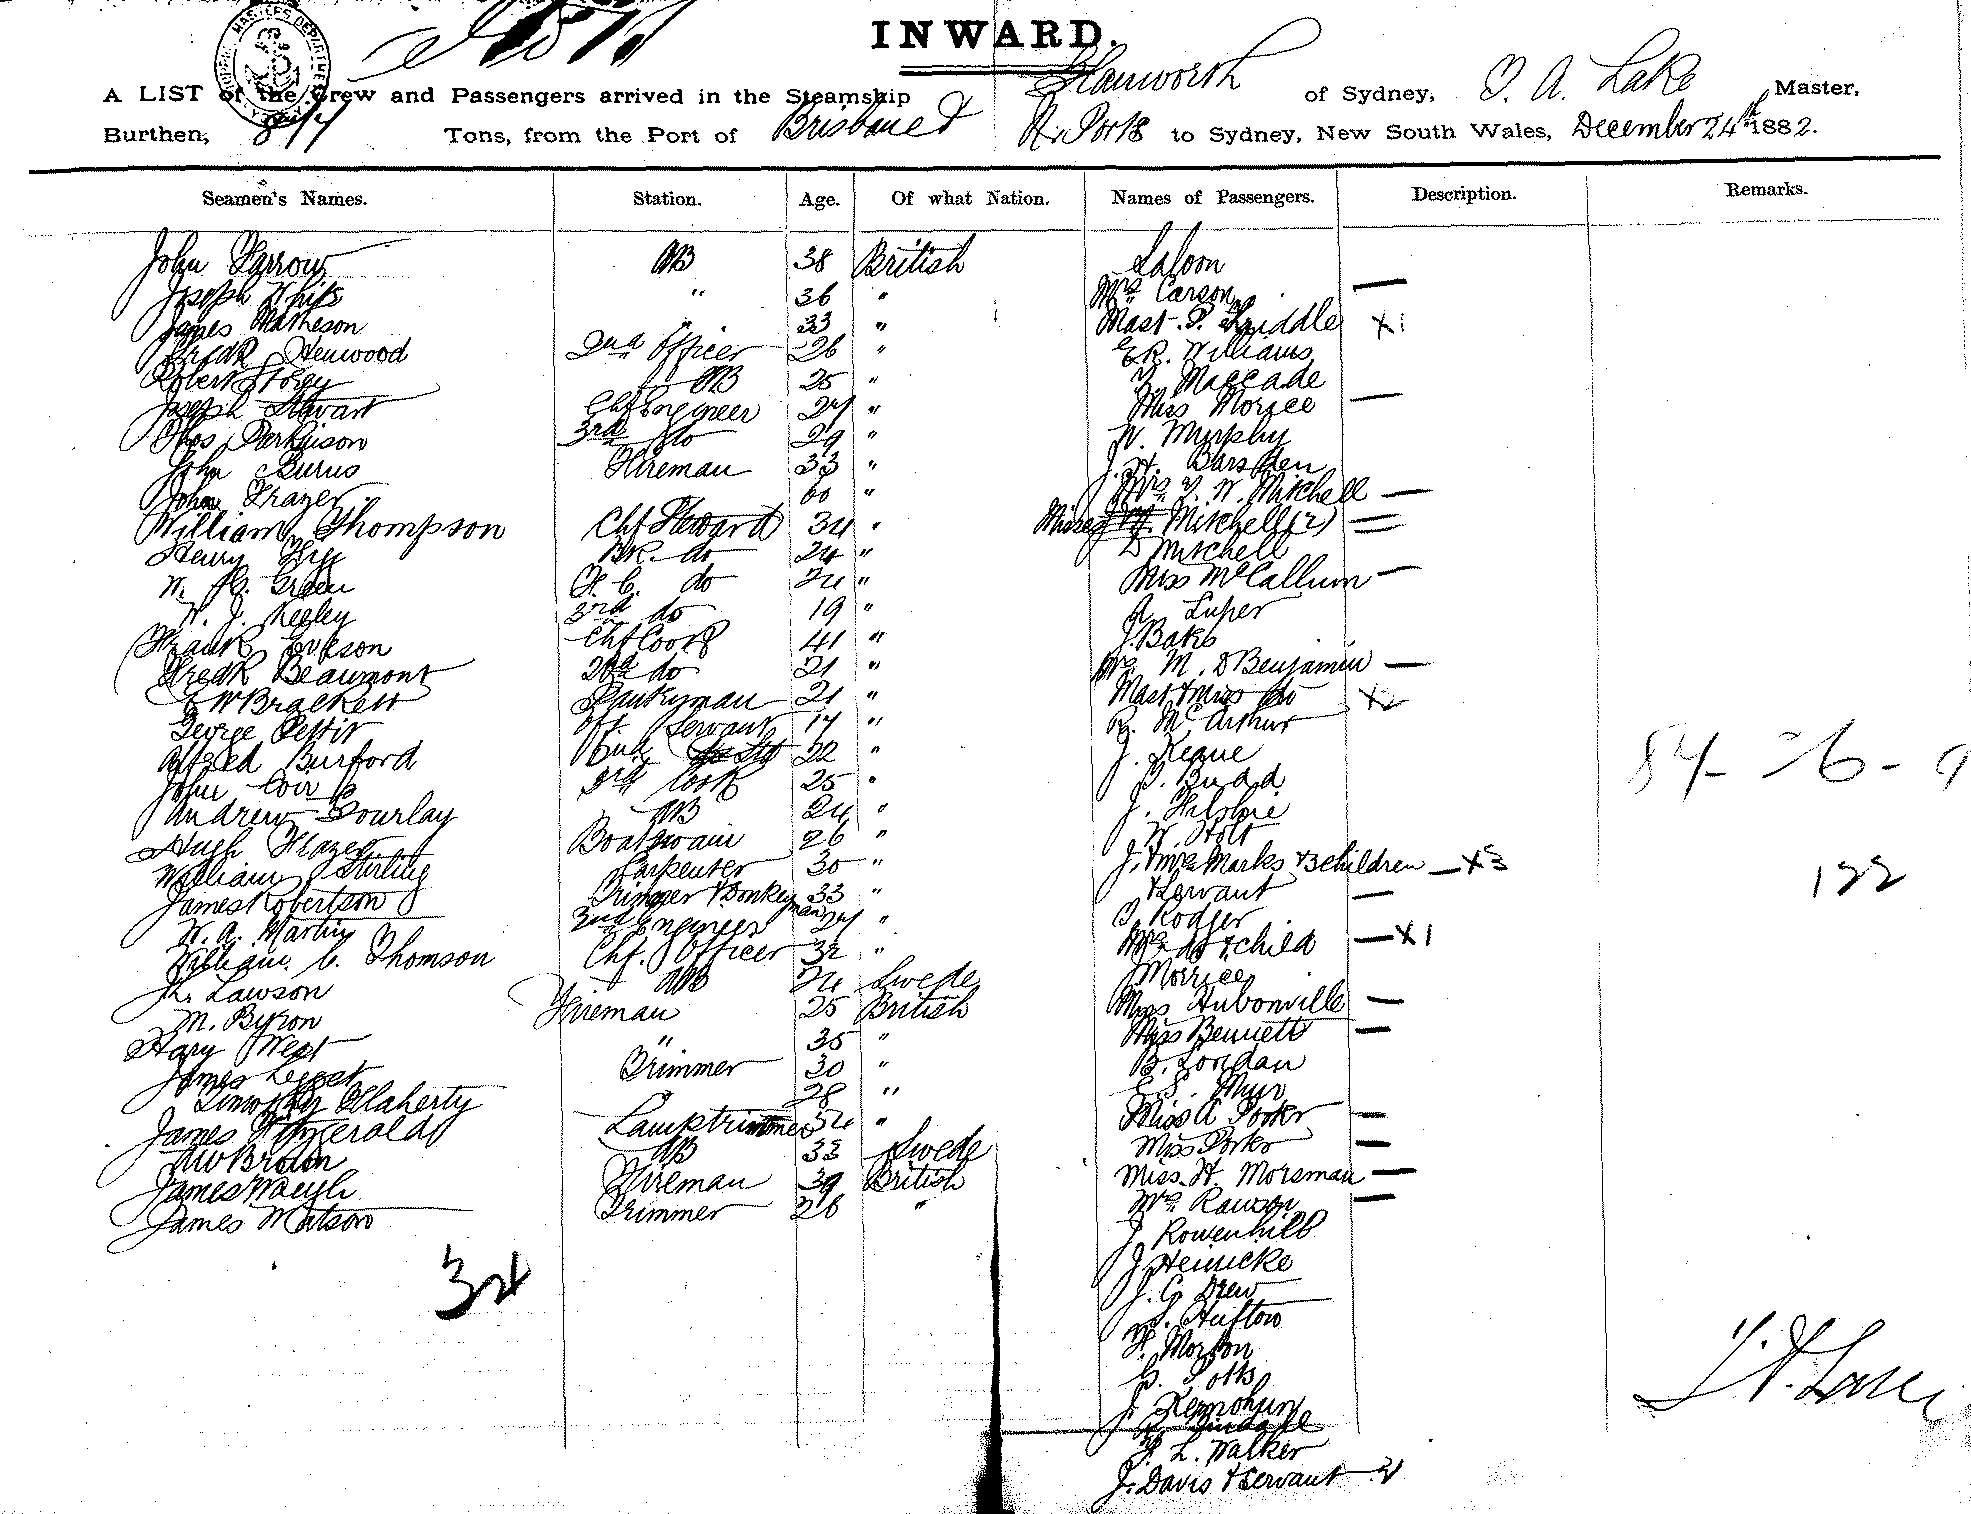 INWARD.
A LIST of the Crew and Passengers arrived in the Steamship Glanworth of Sydney, T. A. Lake Master,
Burthen, Tons, from the Port of Brisbane & N. Ports to Sydney, New South Wales, December 24th 1882.
Seamen's Names. Station. Age. Of what Nation. Names of Passengers. Description. Remarks.
John Farrow AB 38 British Saloon
Joseph White " 36 " Mrs Carson —
James Matheson " 33 " Mast. P. X1
Fredk Henwood 2nd Officer 26 " E R. Williams
Robert Storey AB 25 " Maccade
Joseph Stewart Chf Engineer 27 " Miss Morice —
Thos Perkinson 3rd do 29 " W. Murphy
John Burns Fireman 33 " J. H. Barsden
John Frazer 60 " Mrs Y. W. Mitchell —
William Thompson Chf Steward 34 " Misses Mitchell (2) =
Henry BK. do 24 " D Mitchell
W. H. Green F. C. do 24 " Miss McCallum —
W. J. Keeley 3rd do 19 " Luper
Frank Chf Cook 41 " J. Bake
Fredk Beaumont 2nd do 21 " Mrs M. D Benjamin —
E W Brackett Pantryman 21 " Mast & Miss do X2
George Pettit Servant 17 " R. McArthur
Alfred Burford 22 " J. Keane
John 3rd Cook 25 " Budd
Andrew Gourlay AB 24 " J.
Hugh Frazer Boatswain 26 " W. Holt
William Stirling Carpenter 30 " J. & Mrs Marks & 3 children — X3
James Robertson Trimmer & Donkeyman 33 " & Servant —
W. A. Martin 2nd Engineer 27 " T. Rodger
William C. Thomson Chf. Officer 32 " Mrs do & child — X1
Lawson AB 24 Swede Morrice
M. Byron Fireman 25 British Miss Hubonville —
Hary West " 35 " Miss Bennett —
James Trimmer 30 " B. Londan
Timothy Flaherty 28 " E. S. Muir
James Fitzgerald Lamptrimmer " Miss A Porter —
Brown AB 33 Swede Miss Porter —
James Waugh Fireman 39 British Miss. H. Morsman —
James Matson Trimmer 26 " Mrs Rawson —
J Rowenhill
J Heinicke
J. C. Drew
Huftow
Morton
Potts
J. Kernohan
L. Walker
J. Davis & Servant 2
34
84 - 26 - 9
122